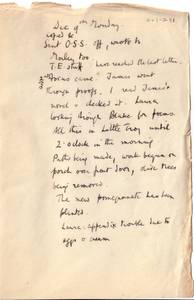 Dec 9th Monday
sent O.S.S. off, wrote to
Morley too
T.E. stuff have reached the last letters.
"Focus came" James went
through proofs. I read James's
word & checked it. Laura
looking through Blake for Focus.
All this in Little Troy until
2 o'clock in the morning
Paths being made, work begun on
porch over front door, olive trees
being removed.
The new pomegranate has been
planted.
Laura: appendix trouble due to
eggs & cream